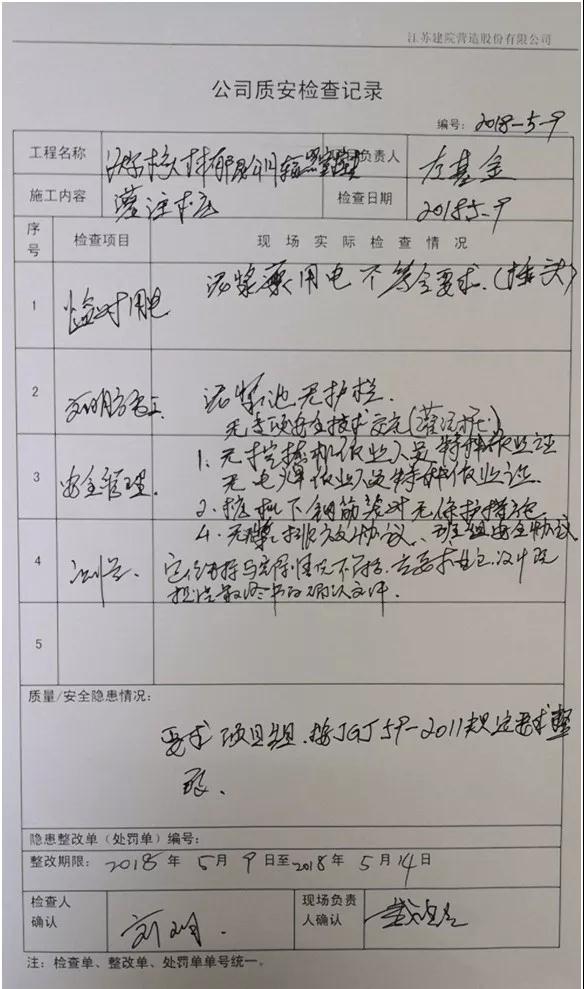 江苏建院营造股份有限公司
公司质安检查记录
编号: 2018-5-9
工程名称 负责人 左基金
施工内容 灌注 检查日期 2018 5-9
序号 检查项目 现场实际检查情况
1 临时用电 泥浆泵用电不符合要求.(接头)
2 文明施工 泥浆池无护栏.
无专项安全技术交底(灌注桩)
3 安全管理. 1. 无挖掘机作业人员特种作业证
无电焊作业人员特种作业证.
2. 桩机下钢筋笼时无保护措施
4. 无 协议、班组安全协议
4 与实际情况不符.
文件.
5
质量/安全隐患情况:
要求项目组.按JGJ59-2011规定要求整
改.
隐患整改单(处罚单)编号:
整改期限: 2018 年 5 月 9 日至 2018 年 5 月 14 日
检查人确认 现场负责人确认
注: 检查单、整改单、处罚单单号统一。